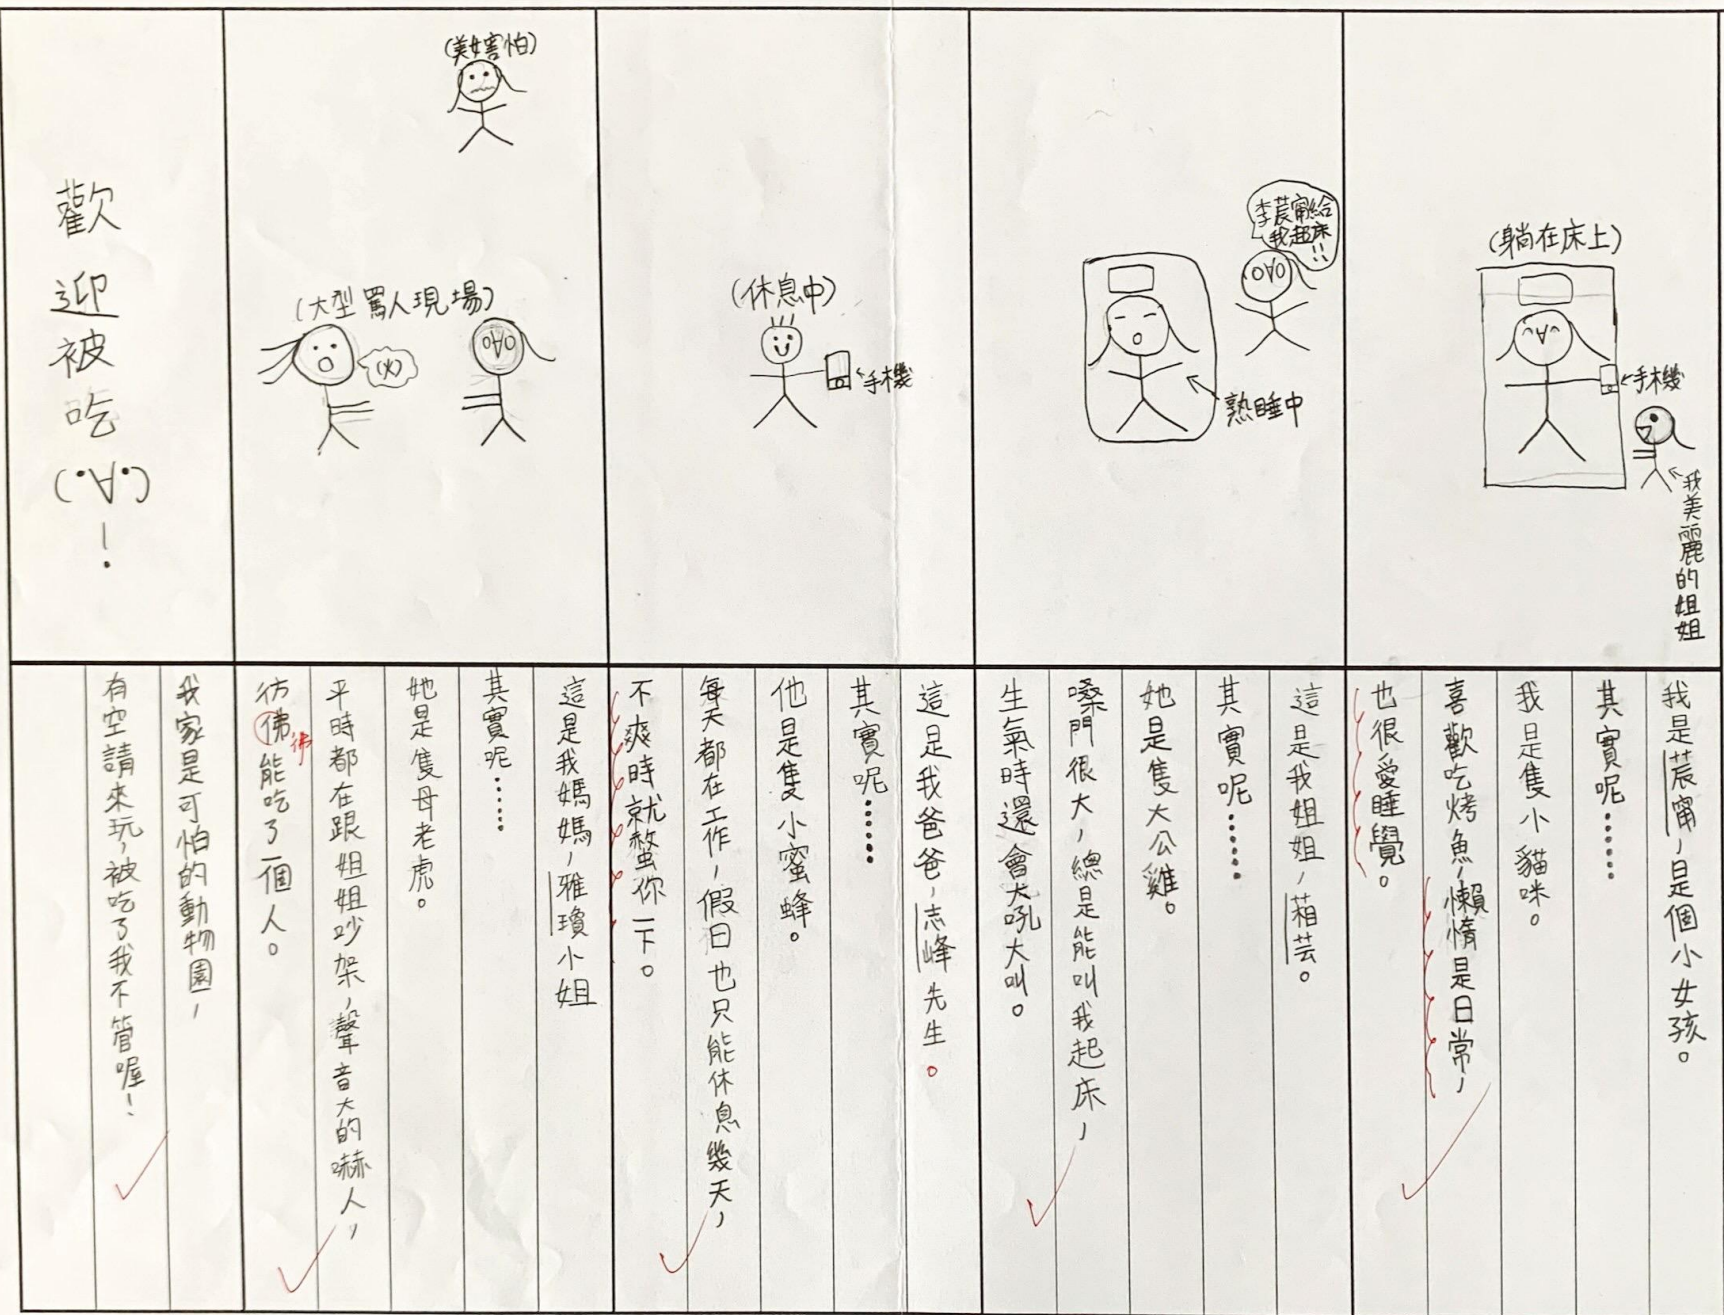 (躺在床上)
←手機
我美麗的姐姐
我是莀甯，是個小女孩。
其實呢……
我是隻小貓咪。
喜歡吃烤魚，懶惰是日常，
也很愛睡覺。
李莀甯給
我起床!!
熟睡中
這是我姐姐，葙芸。
其實呢……
她是隻大公雞。
嗓門很大，總是能叫我起床，
生氣時還會大吼大叫。
(休息中)
←手機
這是我爸爸，志峰先生。
其實呢……
他是隻小蜜蜂。
每天都在工作，假日也只能休息幾天，
不爽時就螫你一下。
(美女害怕)
(大型罵人現場)
(火)
這是我媽媽，雅瓊小姐
其實呢……
她是隻母老虎。
平時都在跟姐姐吵架，聲音大的嚇人，
彷彿能吃了一個人。
佛
歡迎被吃(·∀·)!
我家是可怕的動物園，
有空請來玩，被吃了我不管喔！